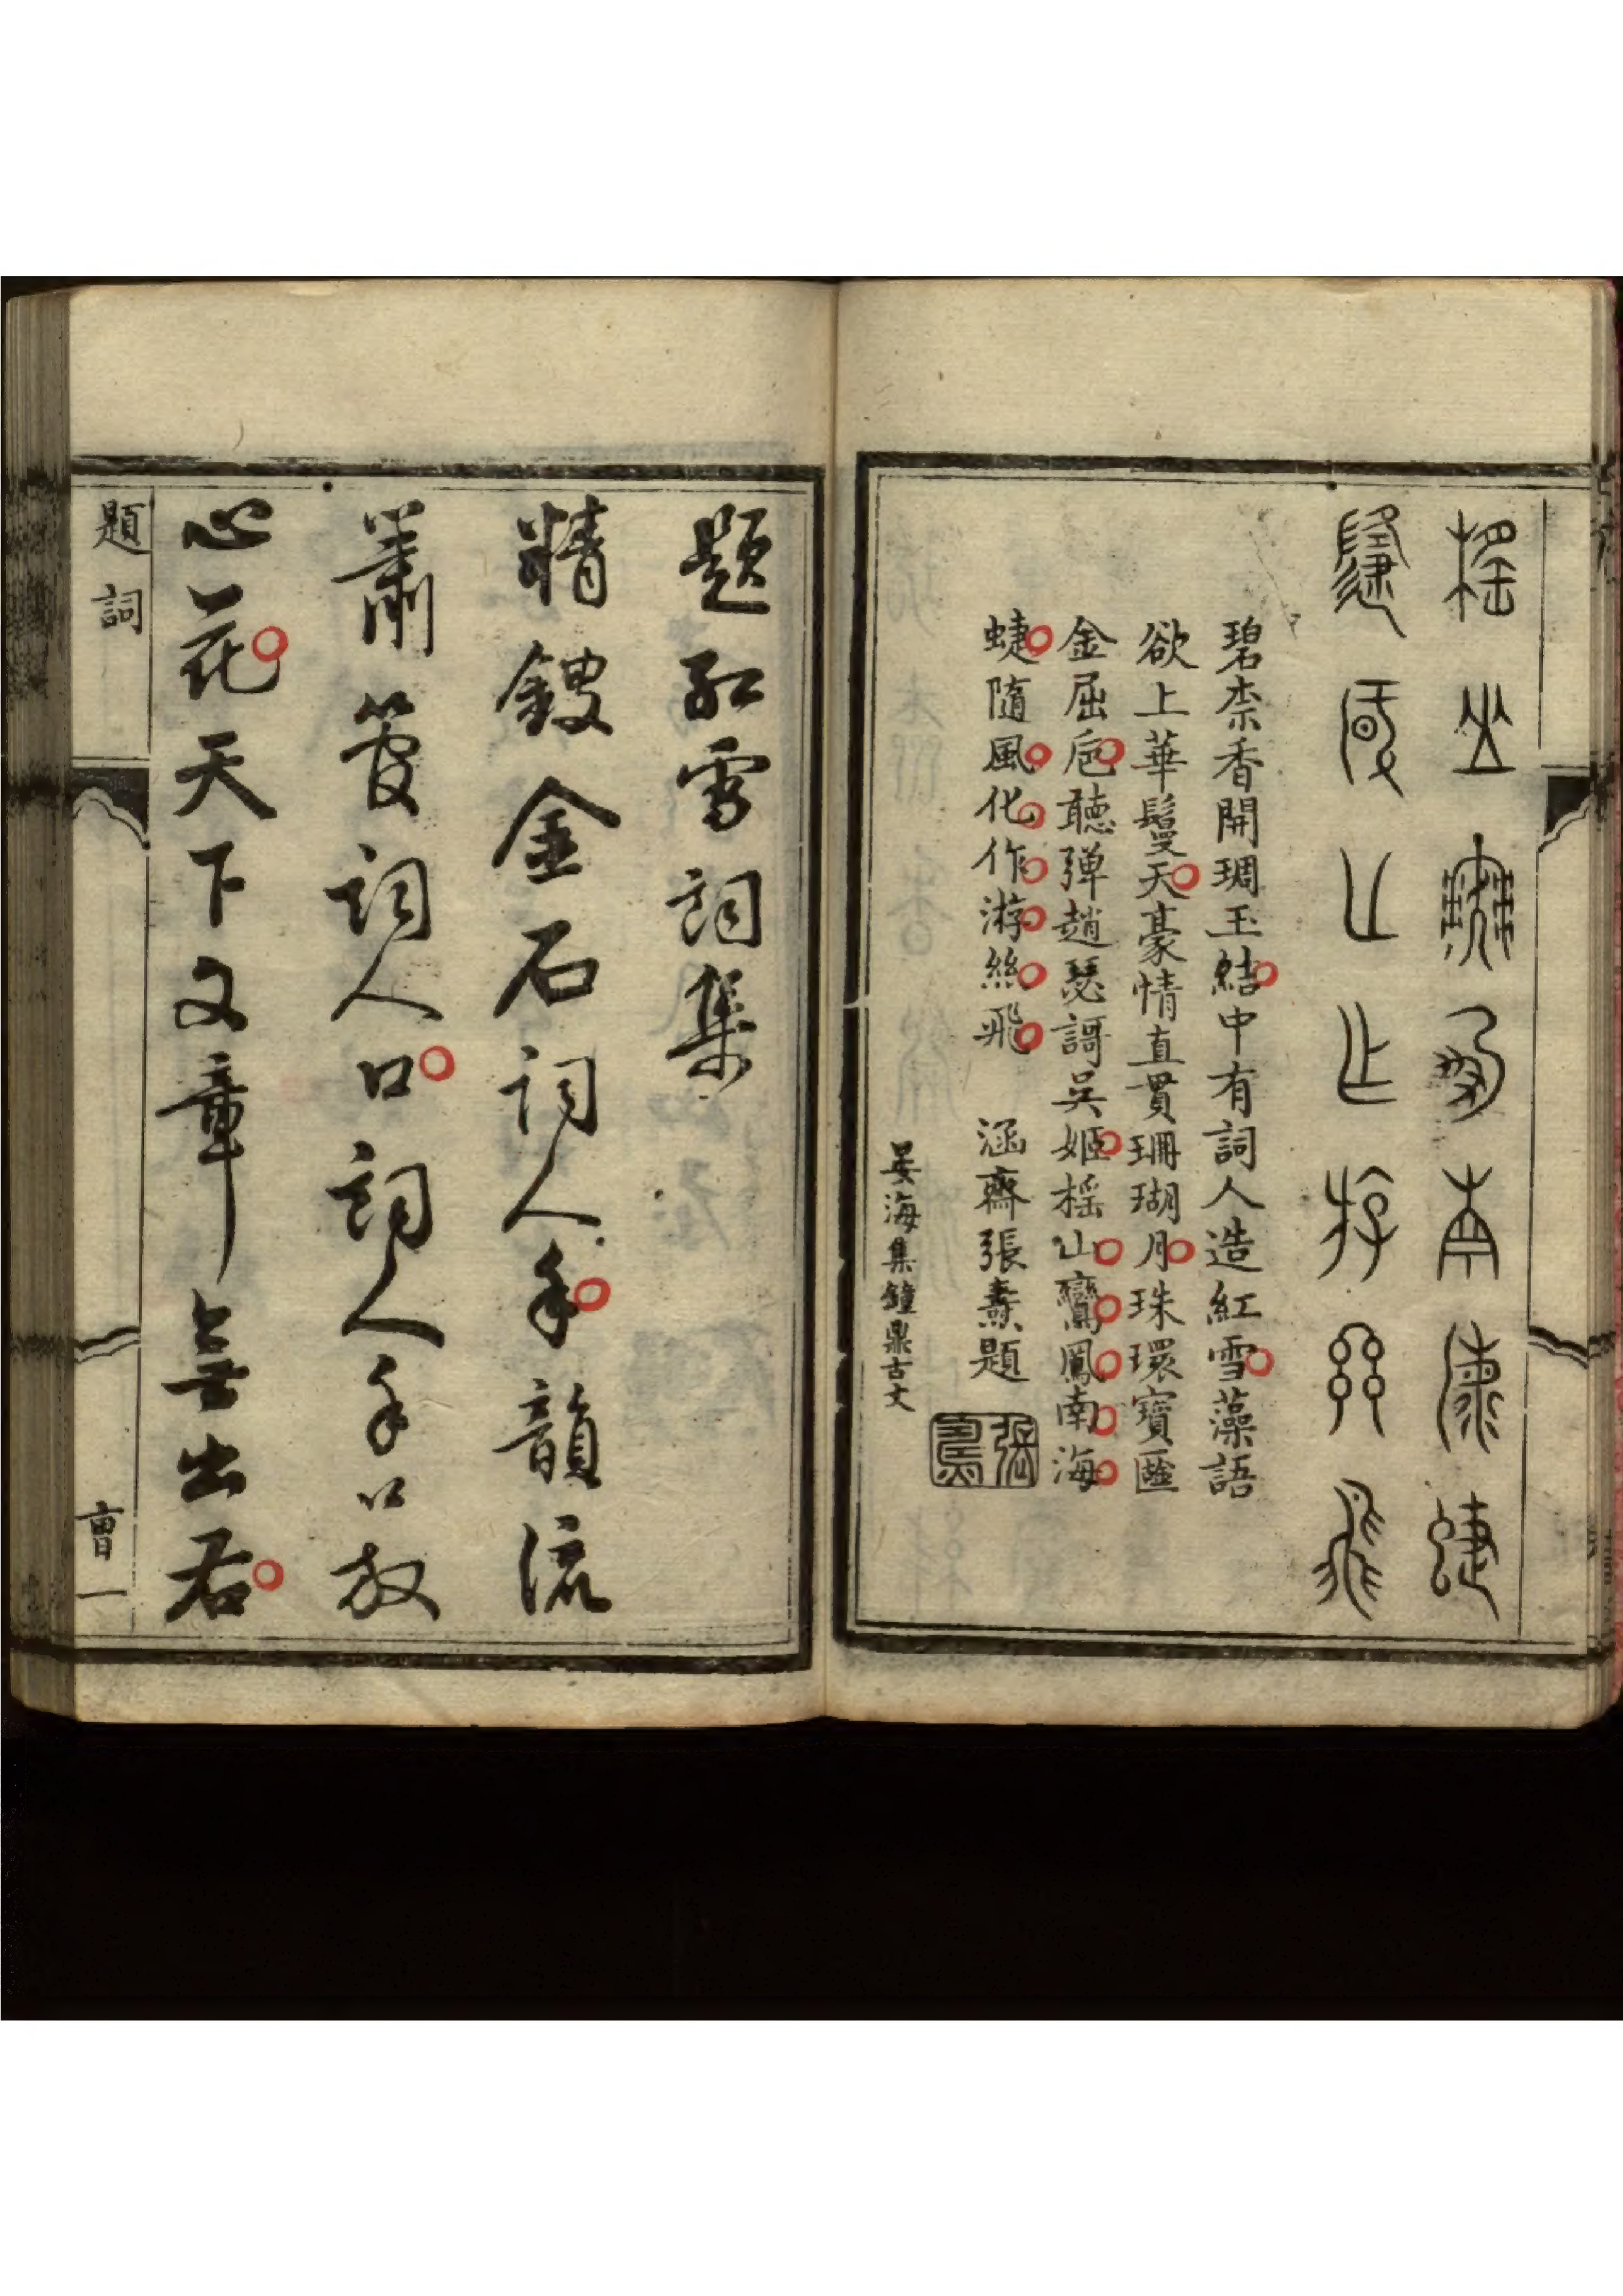 榣山鸞鳳南海蜨
隨風化作游絲飛
碧柰香開琱玉結中有詞人造紅雪藻語
欲上華鬘天豪情直貫珊瑚月珠環寶匳
金屈卮聽彈趙瑟謌吳姬榣山鸞鳳南海
蜨隨風化作游絲飛　涵齋張燾題
晏海集鐘鼎古文
題紅雪詞集
精鏤金石詞人手韻流
簫管詞人口詞人手口放
心花天下文章無出右
題詞
曹一